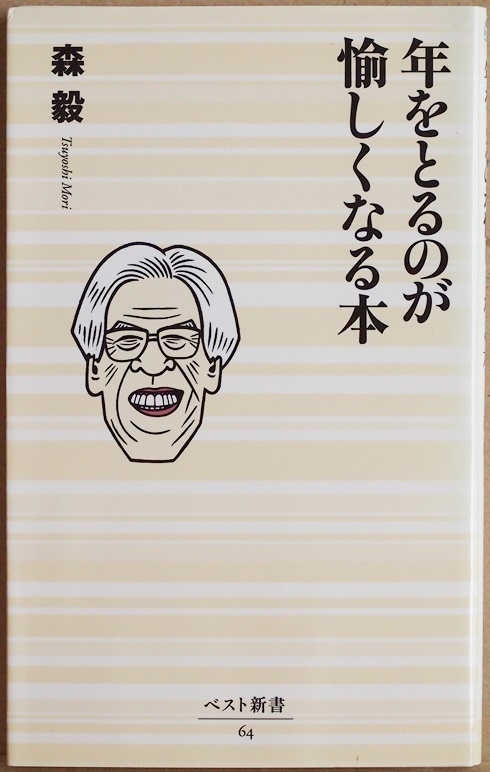 年をとるのが
愉しくなる本
森 毅
Tsuyoshi Mori
ベスト新書
64